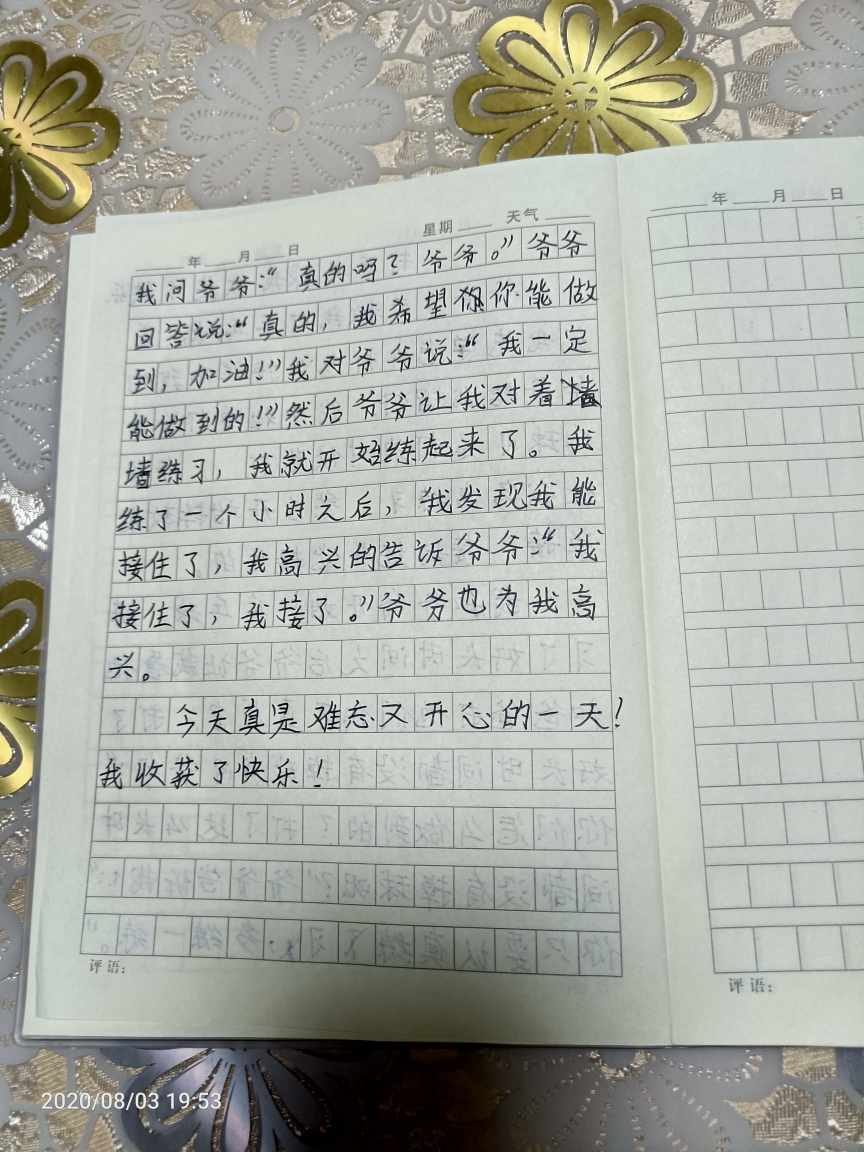 星期 天气
年 月 日
我问爷爷:“真的吗?爷爷。”爷爷
回答说:“真的,我希望你能做
到,加油!”我对爷爷说:“我一定
能做到的!”然后爷爷让我对着
墙练习,我就开始练起来了。我
练了一个小时之后,我发现我能
接住了,我高兴的告诉爷爷:“我
接住了,我接了。”爷爷也为我高
兴。
今天真是难忘又开心的一天!
我收获了快乐!
评语:
年 月 日
评语:
2020/08/03 19:53